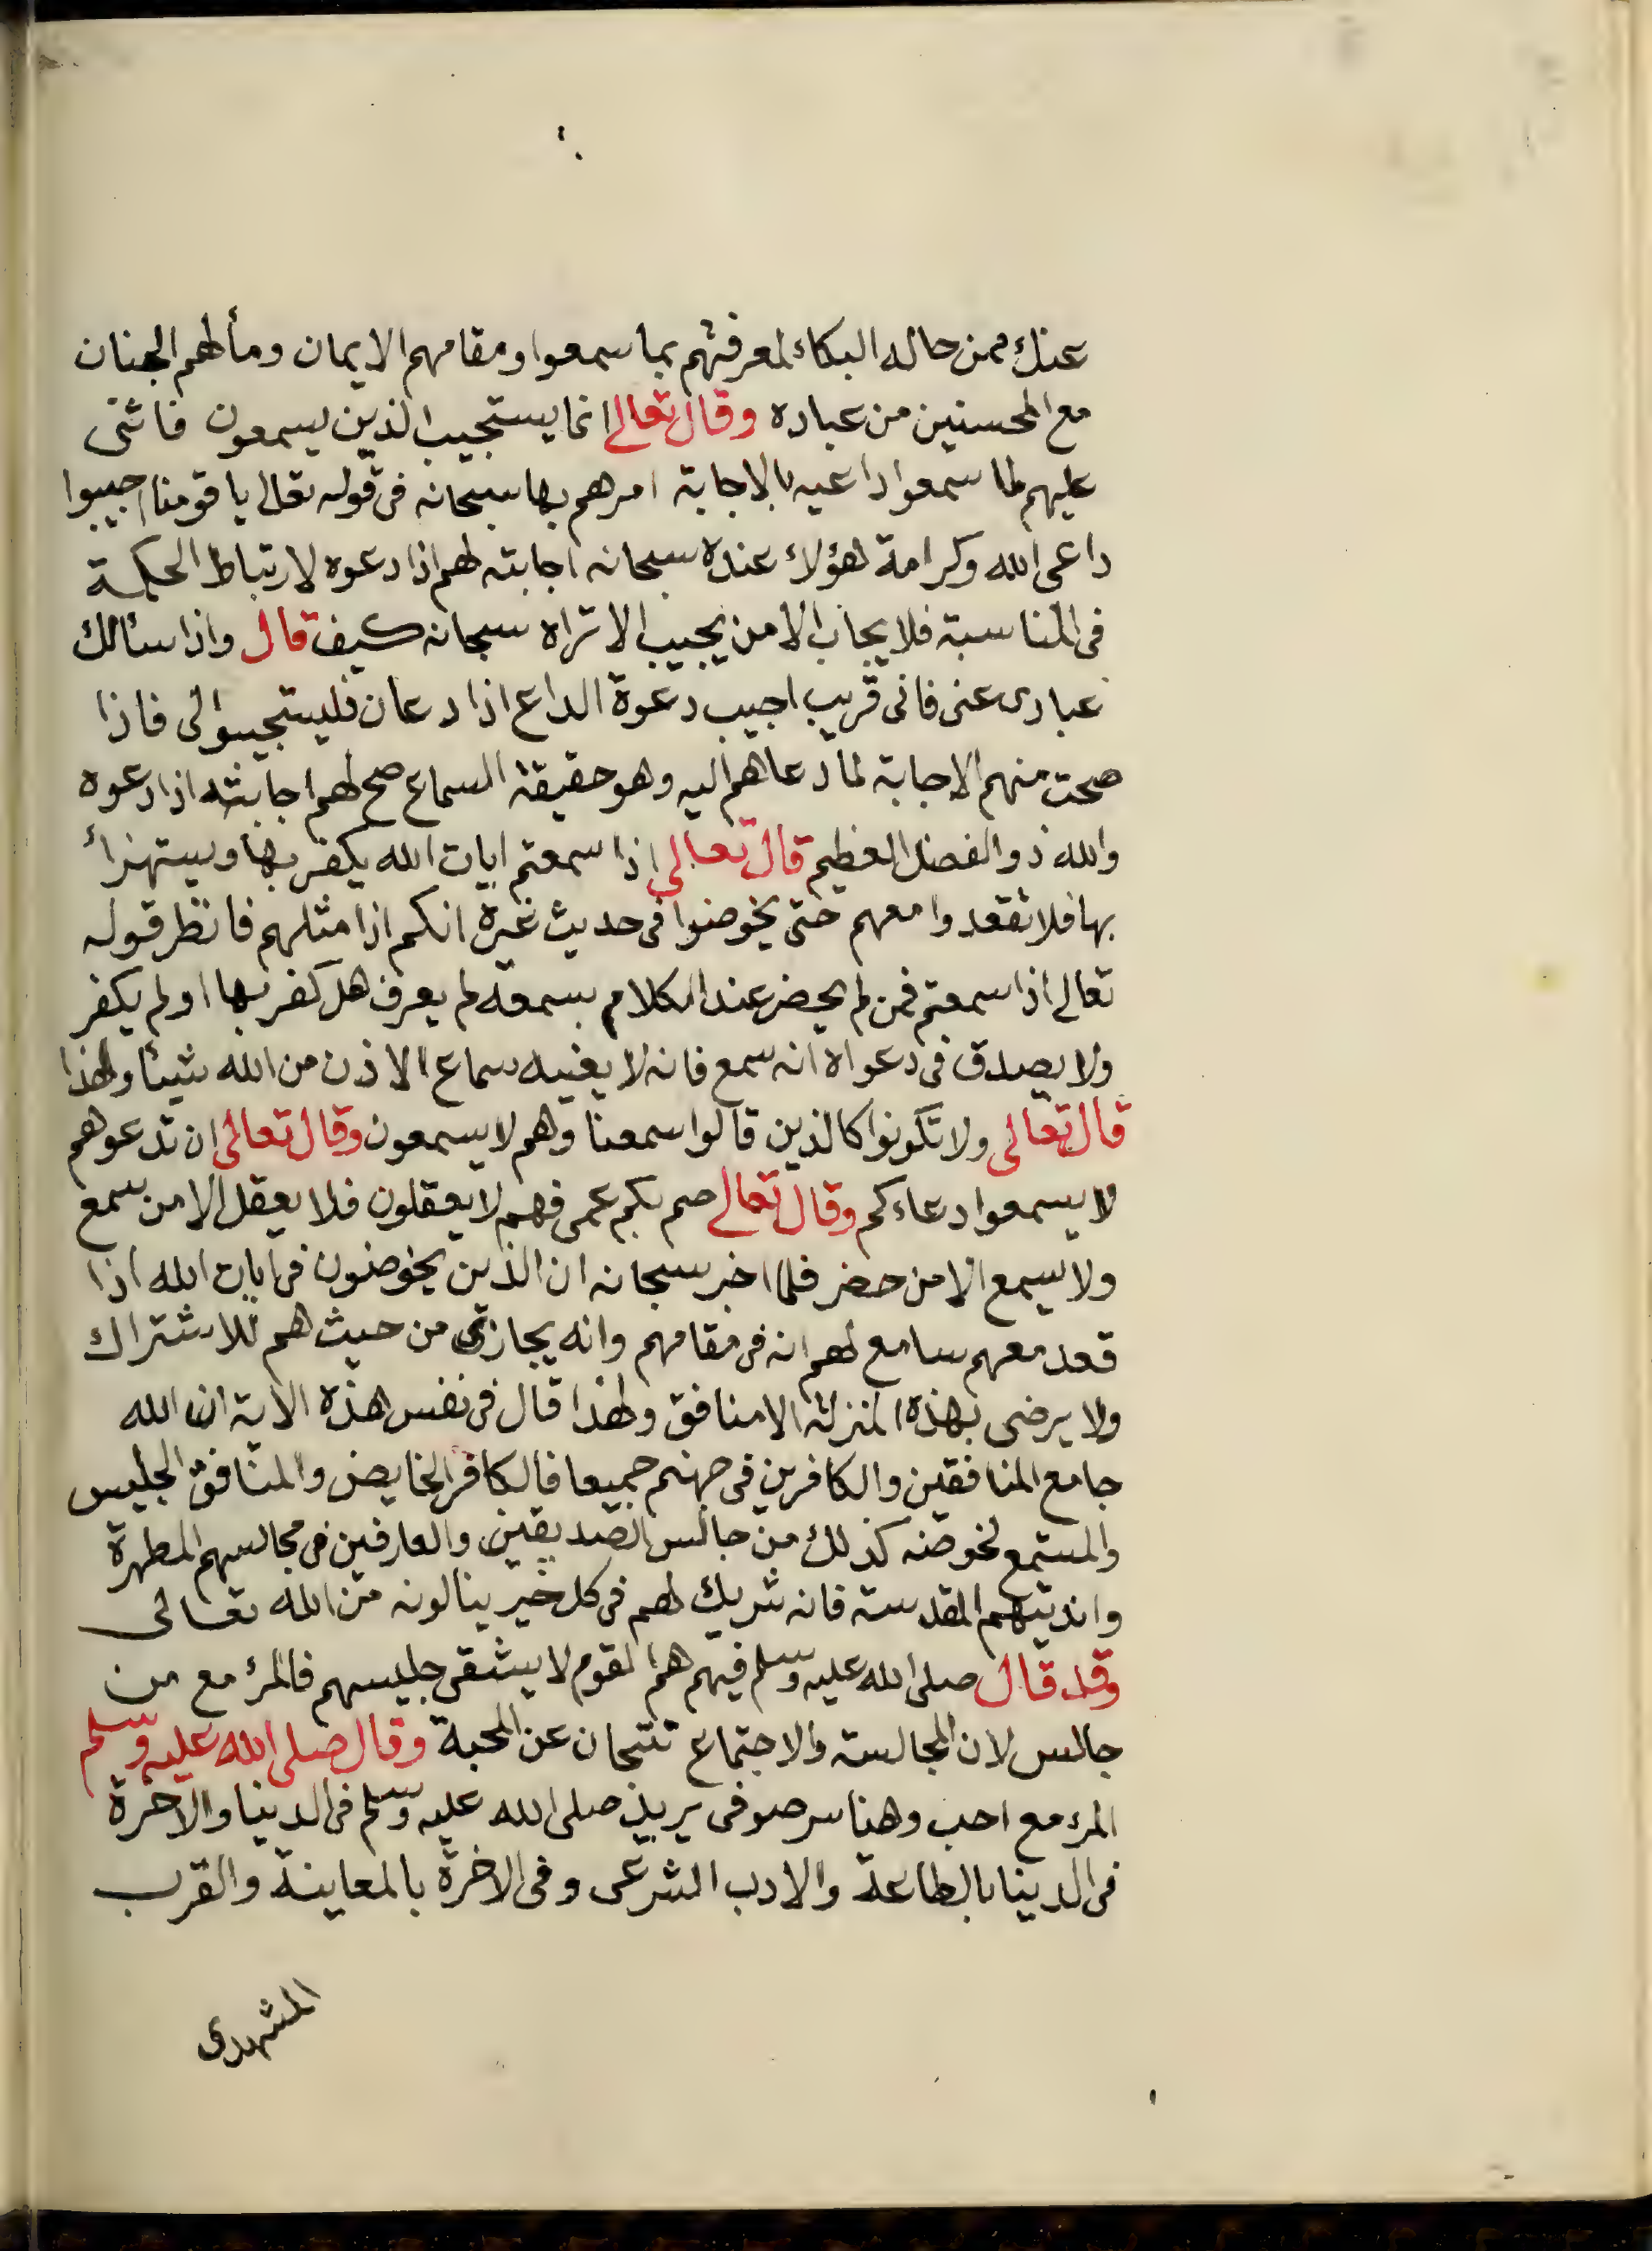 عنك ممن حاله البكاء لمعرفتهم بما سمعوا ومقامهم الايمان ومألهم الجنان
مع المحسنين من عباده وقال تعالى انما يستجيب الذين يسمعون فاثنى
عليهم لما سمعوا داعيه بالاجابة امرهم بها سبحانه فى قوله تعالى ياقومنا اجيبوا
داعى الله وكرامة لهؤلاء عنده سبحانه اجابته لهم اذا دعوه لارتباط الحكمة
فى المناسبة فلا يجاب الا من يجيب الا تراه سبحانه كيف قال واذا سئالك
عبادى عنى فانى قريب اجيب دعوة الداع اذا دعان فليستجيبوا لى فاذا
صحت منهم الاجابة لما دعاهم اليه وهو حقيقة السماع صح لهم اجابته اذا دعوه
والله ذو الفضل العظيم قال تعالى اذا سمعتم ايات الله يكفر بها ويستهزأ
بها فلا تقعدوا معهم حتى يخوضوا فى حديث غيره انكم اذا مثلهم فانظر قوله
تعالى اذا سمعتم فمن لم يحضر عند الكلام بسمعه لم يعرف هل كفر بها او لم يكفر
ولا يصدق فى دعواه انه سمع فانه لا يغنيه سماع الاذن من الله شيئا ولهذا
قال تعالى ولا تكونوا كالذين قالوا سمعنا وهم لا يسمعون وقال تعالى ان تدعوهم
لا يسمعوا دعاءكم وقال تعالى صم بكم عمى فهم لا يعقلون فلا يعقل الا من سمع
ولا يسمع الا من حضر فلما اخبر سبحانه ان الذين يخوضون فى ايات الله اذا
قعد معهم سامع لهم انه فى مقامهم وانه يجازى من حيث هم للاشتراك
ولا يرضى بهذه المنزلة الا منافق ولهذا قال فى نفس هذه الاية ان الله
جامع المنافقين والكافرين فى جهنم جميعا فالكافر الخايض والمنافق الجليس
والمستمع لخوضه كذلك من جالس الصديقين والعارفين فى مجالسهم المطهرة
وانديتهم المقدسة فانه شريك لهم فى كل خير ينالونه من الله تعالى
وقد قال صلى الله عليه وسلم فيهم هم القوم لا يشقى جليسهم فالمرء مع من
جالس لان المجالسة والاجتماع تنتجان عن المحبة وقال صلى الله عليه وسلم
المرء مع احب وهنا سر صوفى يريد صلى الله عليه وسلم فى الدينا والاخرة
فى الدينا بالطاعة والادب الشرعى وفى الاخرة بالمعاينة والقرب
المشهدى